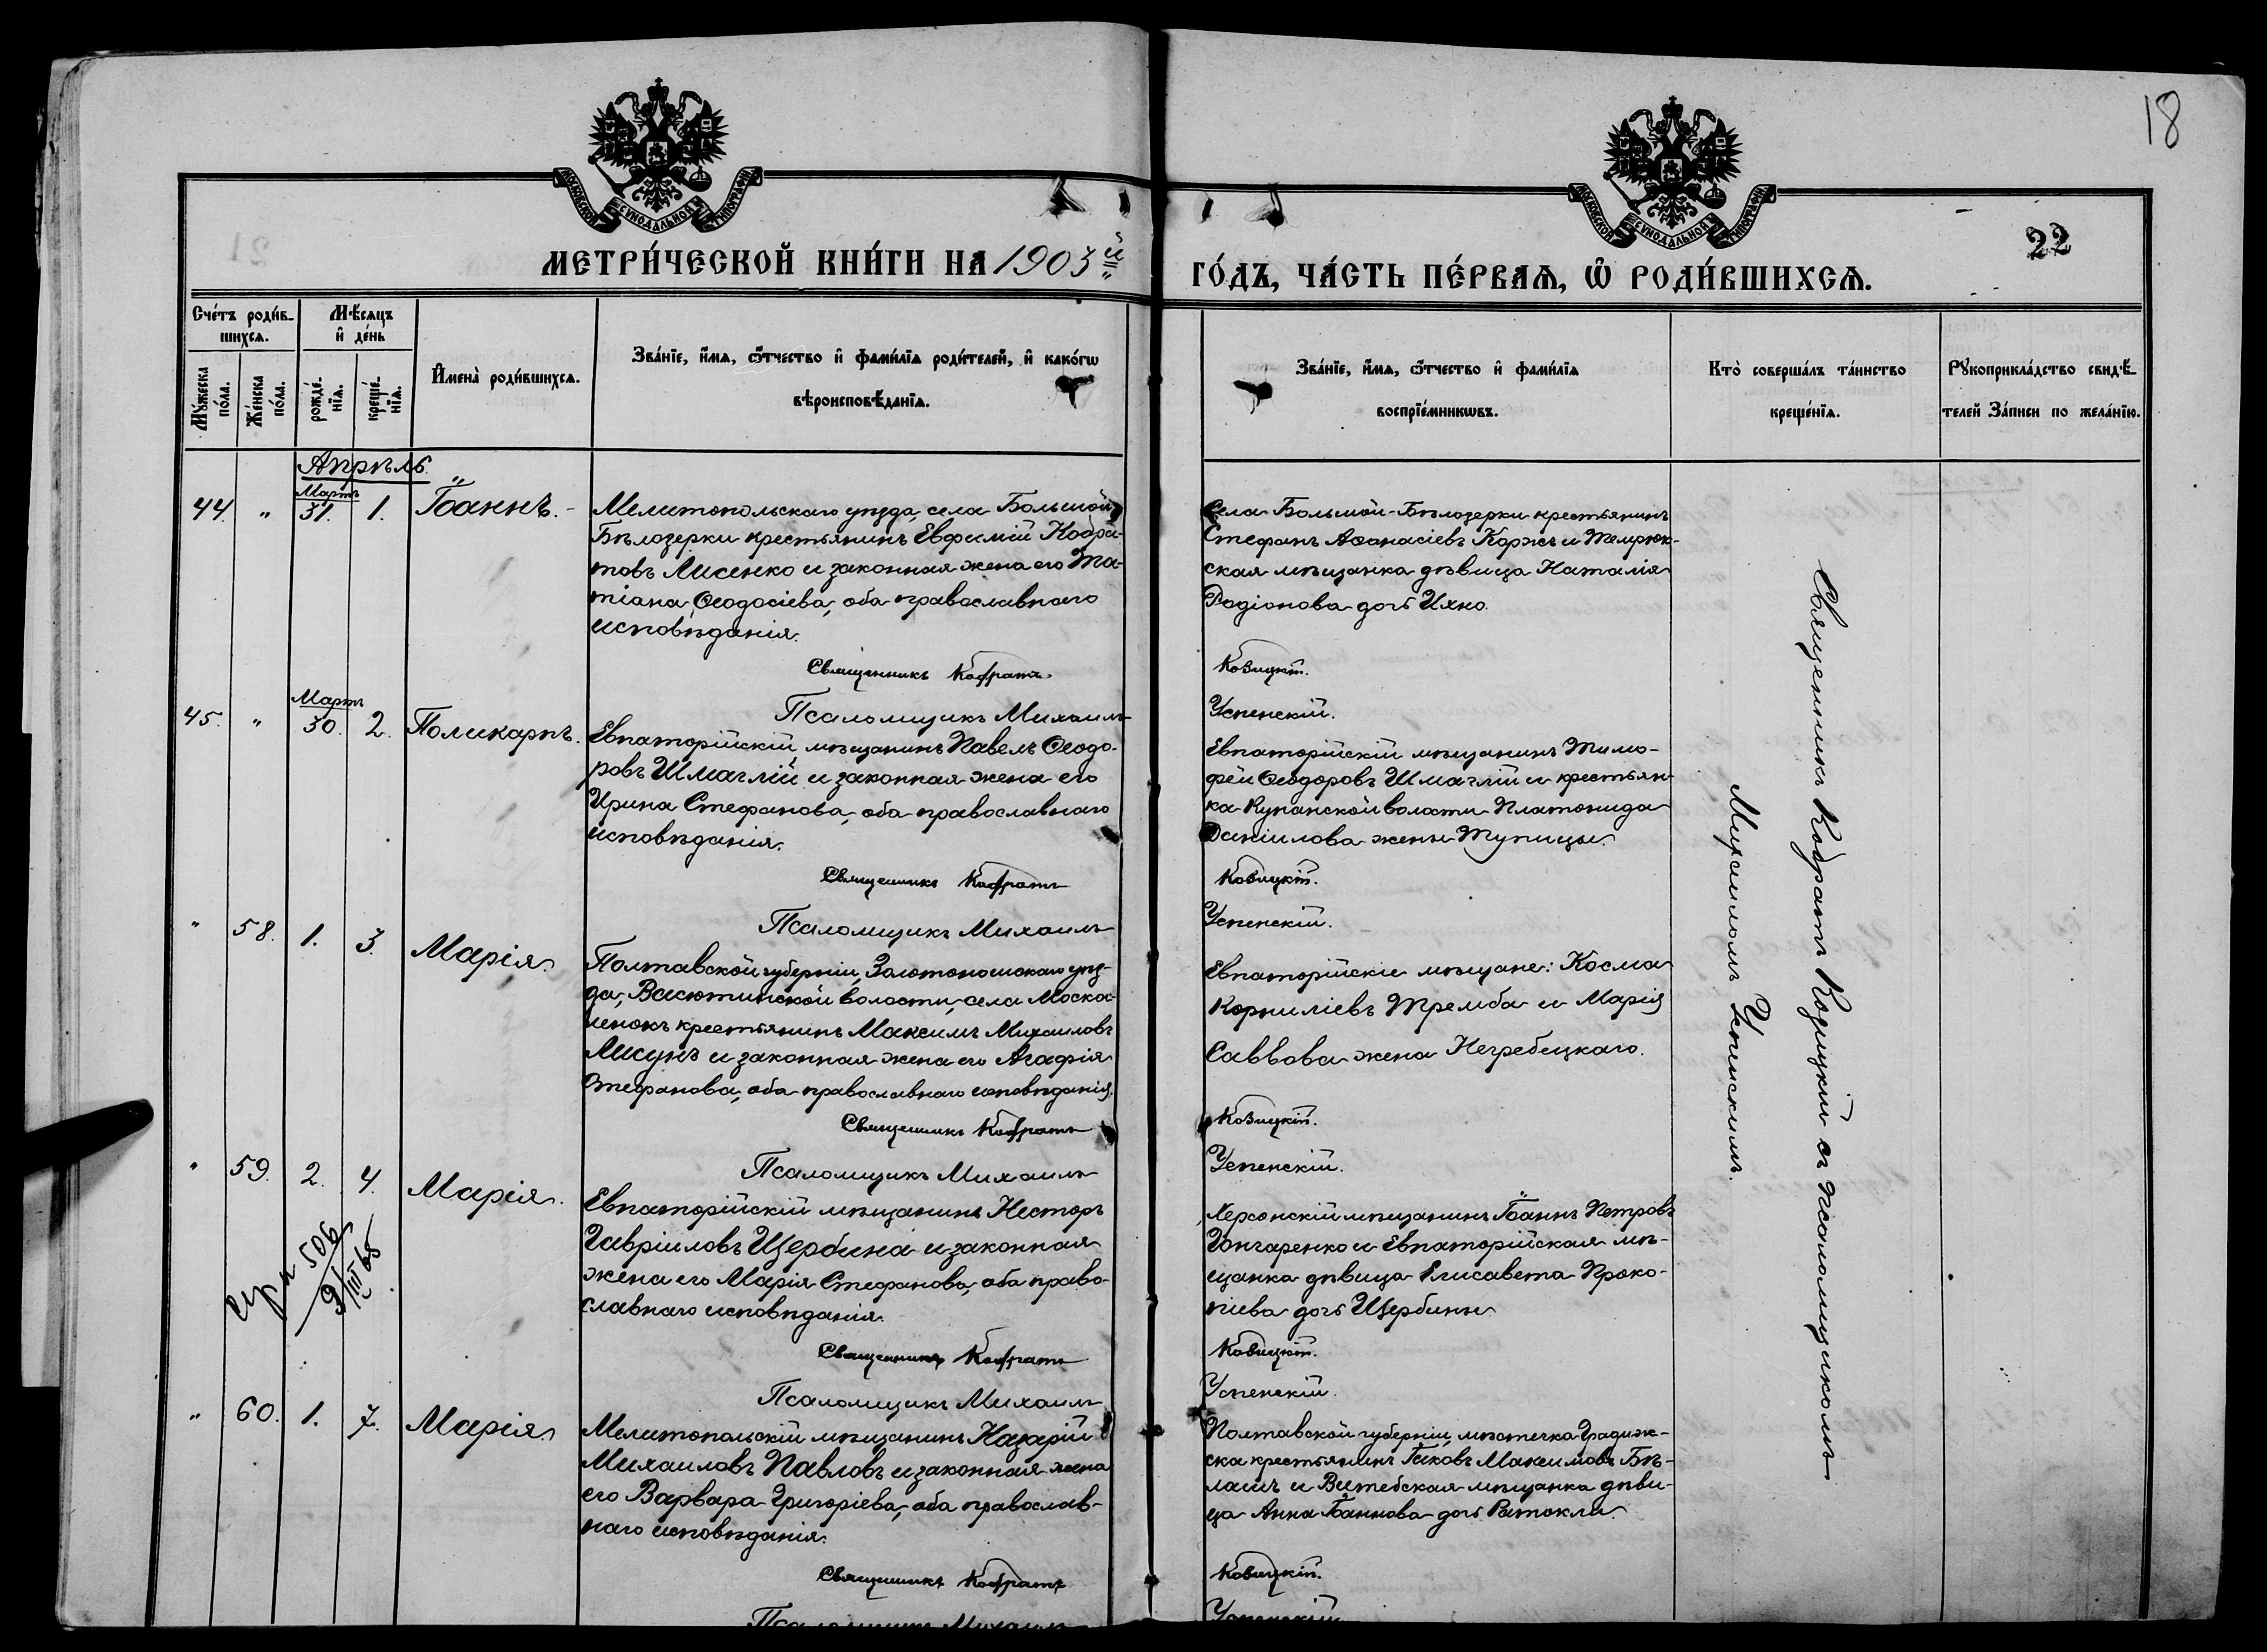 18
22
МОСКОВСКОЙ СУНОДАЛЬНОЙ ТИПОГРАФІИ
МОСКОВСКОЙ СУНОДАЛЬНОЙ ТИПОГРАФІИ
МЕТРИ́ЧЕСКОЙ КНИ́ГИ НА 1903й
ГО́ДЪ, ЧА́СТЬ ПЕ́РВАѦ, Ѽ РОДИ́ВШИХСѦ.
Сче́тъ роди́в-
шихся.
Мꙋ́жеска
по́ла.
Же́нска
по́ла.
Мѣ́сяцъ
и҆ де́нь
рожде́-
нїя.
креще́-
нїя.
И҆мена̀ роди́вшихся.
Зва́нїе, и҆́мя, ѻ҆́тчество и҆ фами́лїя роди́телей, и҆ како́гѡ
вѣроисповѣ́данїя.
Зва́нїе, и҆́мя, ѻ҆́тчество и҆ фами́лїя
воспрїе́мникѡвъ.
Кто̀ соверша́лъ та́инство
креще́нїя.
Рꙋкоприкла́дство свидѣ́-
телей За́писи по жела́нїю.
Апрѣль.
44. " Мартъ 31. 1. Іоаннъ.
Мелитопольскаго уѣзда, села Большой
Бѣлозерки крестьянинъ Евфимій Кодра-
товъ Лисенко и законная жена его Та-
тіана Ѳеодосіева, оба православнаго
исповѣданія.
Священникъ Кодратъ
Псаломщикъ Михаилъ
Села Большой-Бѣлозерки крестьянинъ
Стефанъ Аѳанасіевъ Коржъ и Темрюк-
ская мѣщанка дѣвица Наталія
Родіонова дочь Ихно.
Козицкій.
Успенскій.
45. " Мартъ 30. 2. Поликарпъ.
Евпаторійскій мѣщанинъ Павелъ Ѳеодо-
ровъ Шмаглій и законная жена его
Ирина Стефанова, оба православнаго
исповѣданія.
Священникъ Кодратъ
Псаломщикъ Михаилъ
Евпаторійскій мѣщанинъ Тимо-
фей Ѳеодоровъ Шмаглій и крестьян-
ка Купанской волости Платонида
Даніилова жены Тупицы.
Козицкій.
Успенскій.
" 58. 1. 3. Марія.
Полтавской губерніи, Золотоношскаго уѣз-
да, Васютинской волости, села Москов-
ленокъ крестьянинъ Максимъ Михаиловъ
Лисунъ и законная жена его Агафія
Стефанова, оба православнаго исповѣданія.
Священникъ Кодратъ
Псаломщикъ Михаилъ
Евпаторійскіе мѣщане: Косма
Корниліевъ Тремба и Марія
Саввова жена Негребецкаго.
Козицкій.
Успенскій.
" 59. 2. 4. Марія.
506
9/III 65
Евпаторійскій мѣщанинъ Несторъ
Гавріиловъ Щербина и законная
жена его Марія Стефанова, оба право-
славнаго исповѣданія.
Священникъ Кодратъ
Псаломщикъ Михаилъ
Херсонскій мѣщанинъ Іоаннъ Петровъ
Гончаренко и Евпаторійская мѣ-
щанка дѣвица Елисавета Проко-
піева дочь Щербины
Козицкій.
Успенскій.
" 60. 1. 7. Марія.
Мелитопольскій мѣщанинъ Назарій
Михаиловъ Павловъ и законная жена
его Варвара Григоріева, оба православ-
наго исповѣданія.
Священникъ Кодратъ
Псаломщикъ Михаилъ
Полтавской губерніи, мѣстечка Градиж-
ска крестьянинъ Іаковъ Максимовъ Бѣ-
лашъ и Витебская мѣщанка дѣви-
ца Анна Іоаннова дочь Ратокли.
Козицкій.
Успенскій
Священникъ Кодратъ Козицкій съ псаломщикомъ
Михаиломъ Успенскимъ.